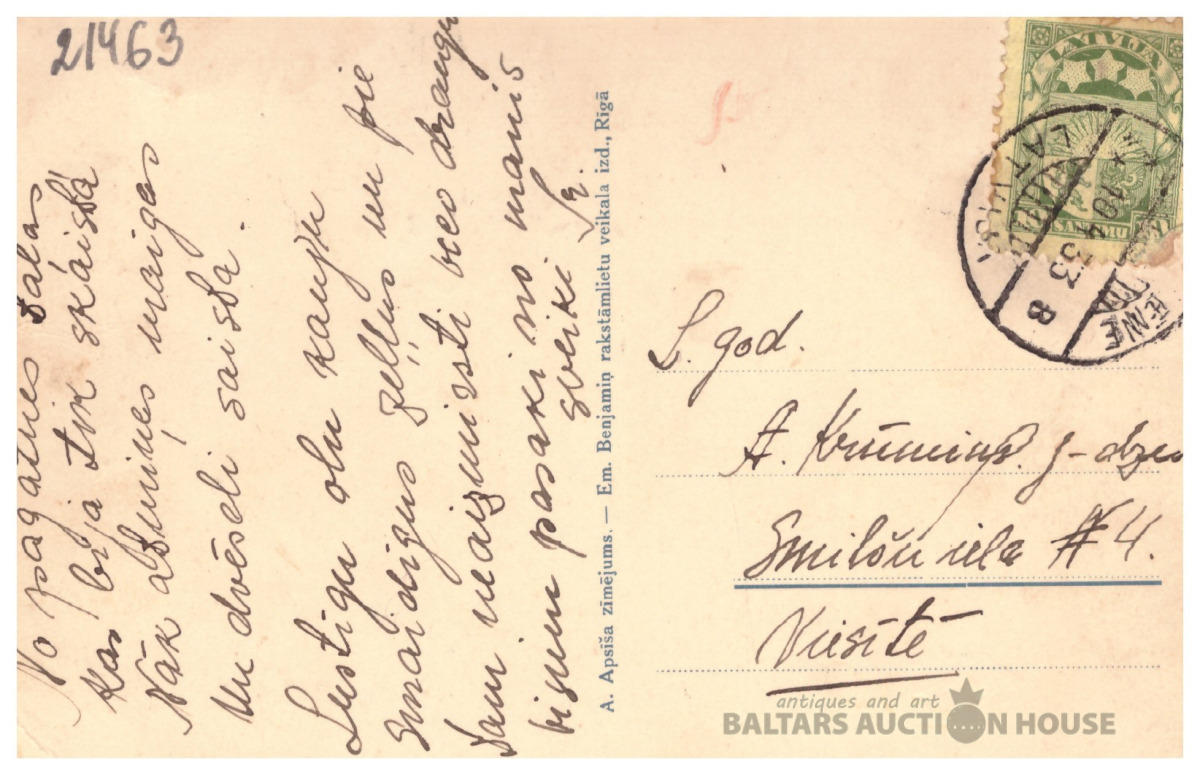 21463
No pagātnes tālas
Kas bija tik skaistā
Nāk atmiņas maigas
Un dvēseli saista.
Lustīgu olu kauju
Smaidigus ģeļļus un pie
tam neaizmirsti
pasaki no manis
sveiki
A. Apsīša zīmējums. — Em. Benjamiņ rakstāmlietu veikala izd., Rīgā
LATVIJA
SANTIMU
LATVIJA
10 4 33
B
L. god.
A. Krūmiņš. j-dze
Smilšu iela # 4.
Viesītē
antiques and art
BALTARS AUCTION HOUSE